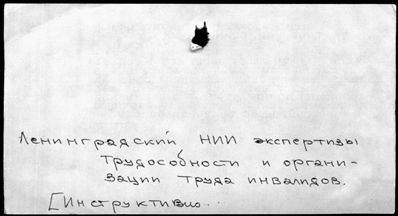 Ленинградский НИИ экспертизы
трудособности и органи-
зации труда инвалидов.
[Инструктивно...